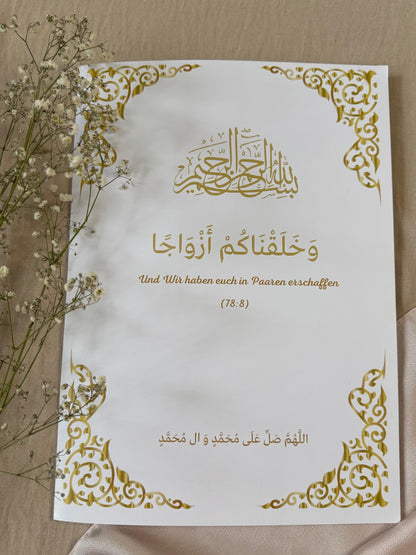 بسم الله الرحمن الرحيم
وَخَلَقْنَاكُمْ أَزْوَاجًا
Und Wir haben euch in Paaren erschaffen
(78:8)
اللَّهُمَّ صَلِّ عَلَى مُحَمَّدٍ وَ ال مُحَمَّدٍ